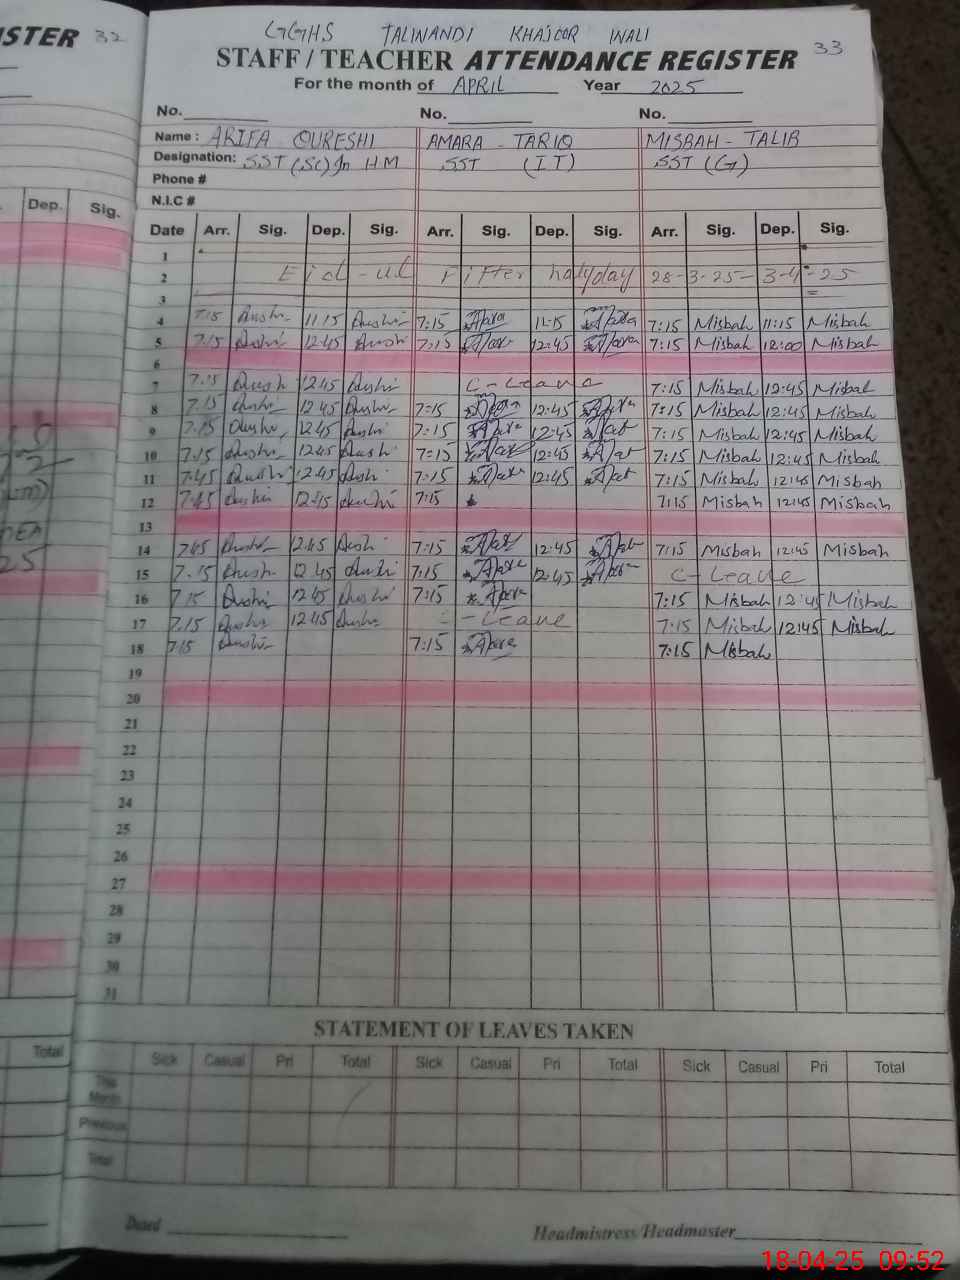 STER 32
GGHS TALWANDI KHAJOOR WALI
STAFF / TEACHER ATTENDANCE REGISTER 33
For the month of APRIL Year 2025
No. No. No.
Name : ARIFA QURESHI AMARA - TARIQ MISBAH - TALIB
Designation: SST (Sc) In HM SST (IT) SST (G)
Phone #
N.I.C #
Dep. Sig.
Date Arr. Sig. Dep. Sig. Arr. Sig. Dep. Sig. Arr. Sig. Dep. Sig.
1
2 Eid - ul Fitter holyday 28-3-25 - 3-4-25
3
4 7:15 11:15 7:15 11-15 7:15 Misbah 11:15 Misbah
5 7.15 12.45 7:15 12:45 7:15 Misbah 12:00 Misbah
6
7 7.15 12.45 C-Leave 7:15 Misbah 12:45 Misbah
8 7.15 12.45 7:15 12:45 7:15 Misbah 12:45 Misbah
9 7.15 12.45 7:15 12:45 7:15 Misbah 12:45 Misbah
10 7.15 12.45 7:15 12:45 7:15 Misbah 12:45 Misbah
11 7.45 12.45 7:15 12:45 7:15 Misbah 12:45 Misbah
12 7.45 12.45 7:15 7:15 Misbah 12:45 Misbah
13
14 7.45 12.45 7:15 12:45 7:15 Misbah 12:45 Misbah
15 7.15 12.45 7:15 12:45 C-Leave
16 7.15 12.45 7:15 7:15 Misbah 12:45 Misbah
17 7.15 12.45 C-Leave 7:15 Misbah 12:45 Misbah
18 7.15 7:15 7:15 Misbah
19
20
21
22
23
24
25
26
27
28
29
30
31
STATEMENT OF LEAVES TAKEN
Total Sick Casual Pri Total Sick Casual Pri Total Sick Casual Pri Total
This Month
Previous
Total
Dated Headmistress/Headmaster
18-04-25 09:52